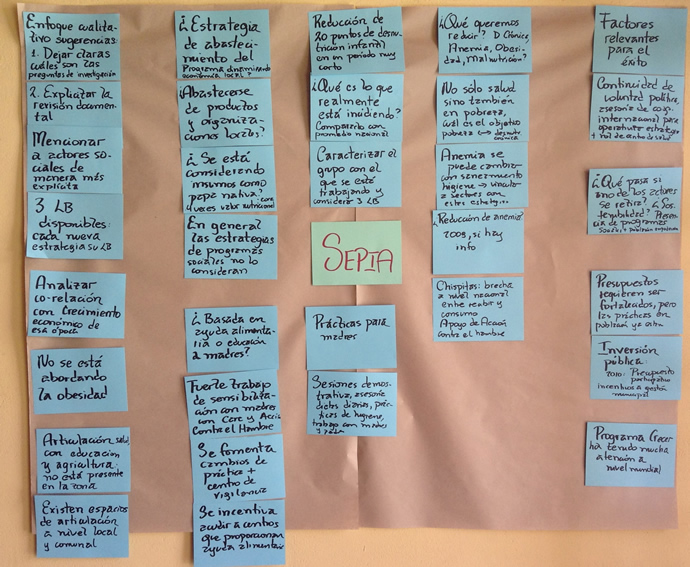 Enfoque cualita-
tivo sugerencias:
1. Dejar claras
cuáles son las
preguntas de investigación
2. Explicitar la
revisión documen-
tal
Mencionar
a actores so-
ciales de
manera más
explícita
3 LB
disponibles:
cada nueva
estrategia su LB
Analizar
co-relación
con Crecimiento
económico de
esa época
No se está
abordando
la obesidad
Articulación salud,
con educacion
y agricultura:
no está presente
en la zona
Existen espacios
de articulación
a nivel local
y comunal
¿Estrategia
de abaste-
cimiento del
Programa dinamizando
económica local?
¿Abastecerse
de productos
y organiza-
ciones locales?
¿Se está
considerando
insumos como
papa nativa?
valor nutricional
En general
las estrategias
de programas
sociales no lo
consideran
¿Basada en
ayuda alimenta-
ria o educación
a madres?
Fuerte trabajo
de sensibiliza-
ción con madres
con Care y Acción
Contra el Hambre
Se fomenta
cambios de
práctica +
centro de
vigilancia
Se incentiva
acudir a centros
que proporcionan
ayuda alimentaria
Reducción de
20 puntos de desnu-
trición infantil
en un periodo muy
corto
¿Qué es lo que
realmente
está incidiendo?
Compararlo con
promedio nacional
Caracterizar el
grupo con el
que se está
trabajando y
considerar 3 LB
SEPIA
Prácticas para
madres
Sesiones demos-
trativa, asesoría
dietas diarias, prác-
ticas de higiene,
trabajo con madres
¿Qué queremos
reducir? D Crónica,
Anemia, Obesi-
dad, Malnutrición?
No sólo salud
sino también
en pobreza,
cuál es el objetivo
pobreza ↔ desnutr.
crónica
Anemia se
puede cambiar
con saneamiento
higiene → vincular
a sectores con
estas estrateg...
¿Reducción de anemia?
2009, si hay
info
Chispitas: brecha
a nivel nacional
entre recibir y
consumo
Apoyo de Acción
contra el hambre
Factores
relevantes
para el
éxito
Continuidad de
voluntad política,
asesoría de coop.
internacional para
operativizar estrategia
+ rol de centro de salud
¿Qué pasa si
uno de los actores
se retira? ¿Sos-
tenibilidad? Presen-
cia de programas
Sociales
Presupuestos
requieren ser
fortalecidos, pero
las prácticas en
población ya están
Inversión
pública:
2010: Presupuesto
participativo
incentivos a gestión
municipal
Programa Crecer
ha tenido mucha
atención a
nivel mundial